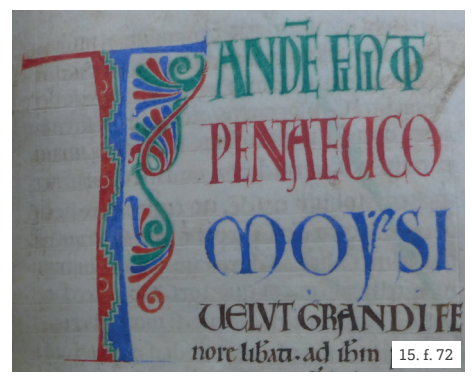 TANDĒ FINITO
PENTATEUCO
MOYSI
UELVT GRANDI FE
nore libati. ad ihm
15. f. 72